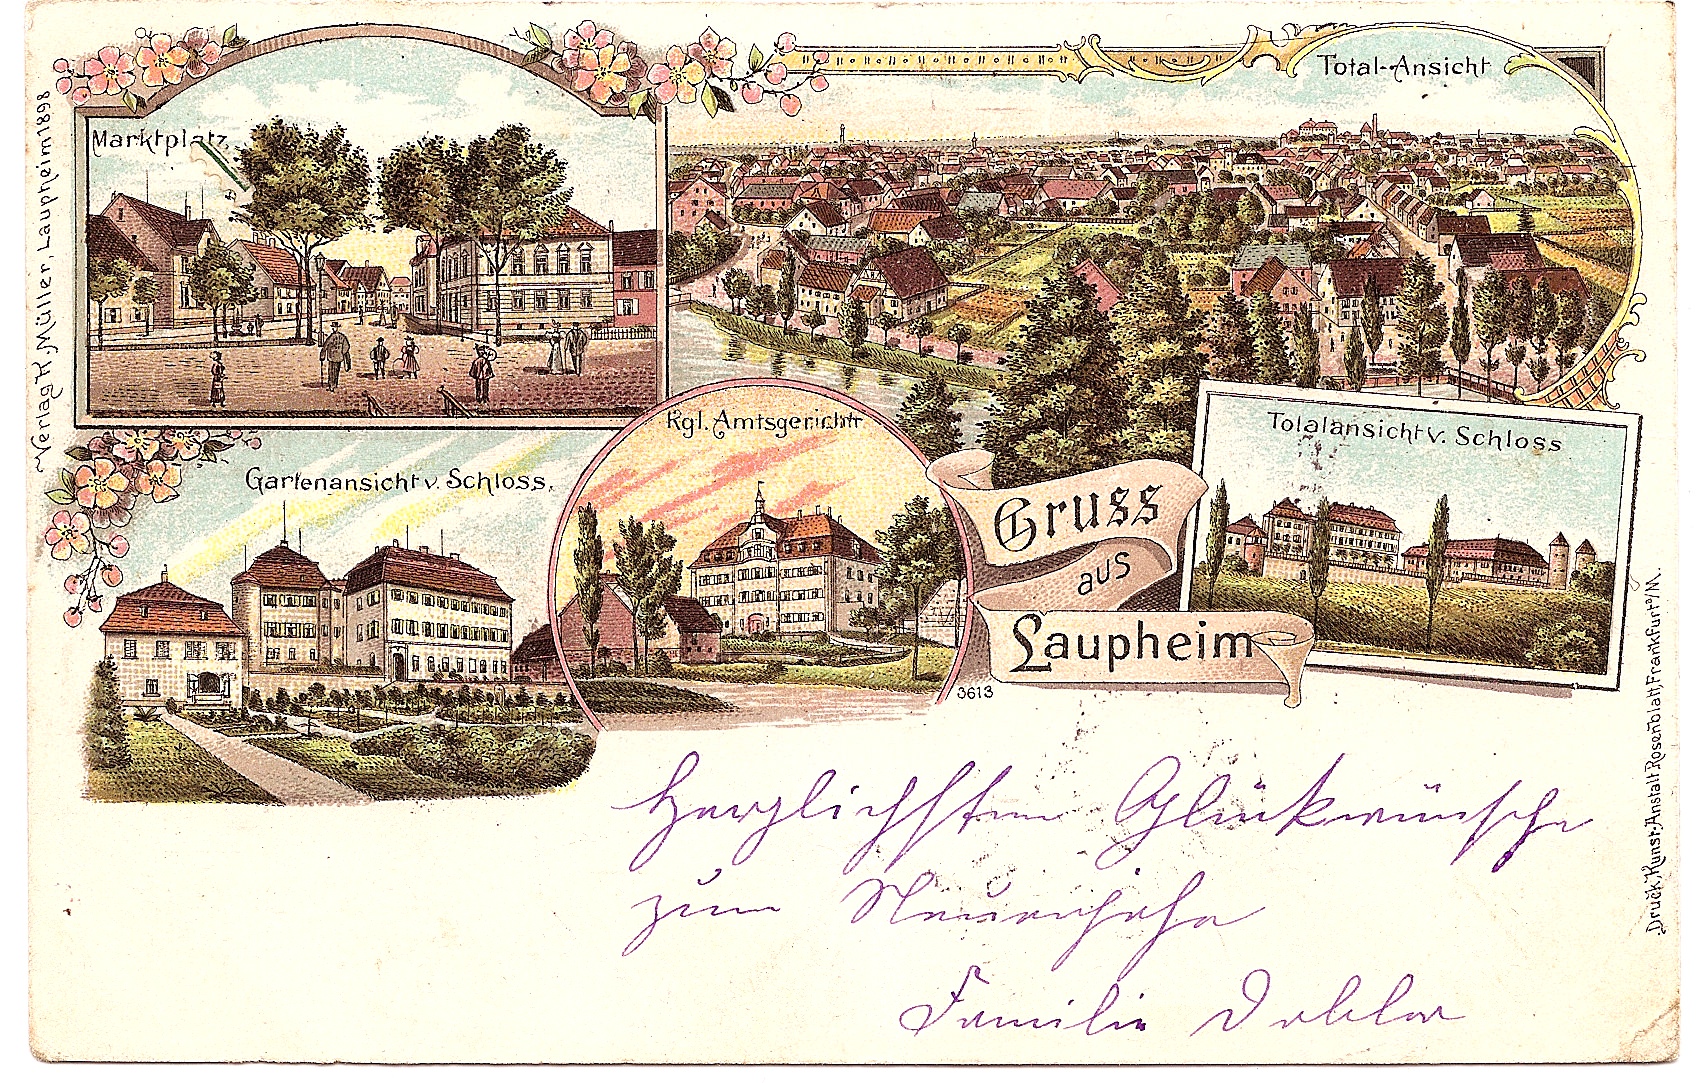 Marktplatz
Total-Ansicht
Verlag K. Müller, Laupheim 1898
Kgl. Amtsgericht
Totalansicht v. Schloss
Gartenansicht v. Schloss.
Gruss
aus
Laupheim
3613
Druck, Kunst-Anstalt Rosenblatt, Frankfurt a/M.
Herzlichsten Glückwünsche
zum Neuenjahr
Familie